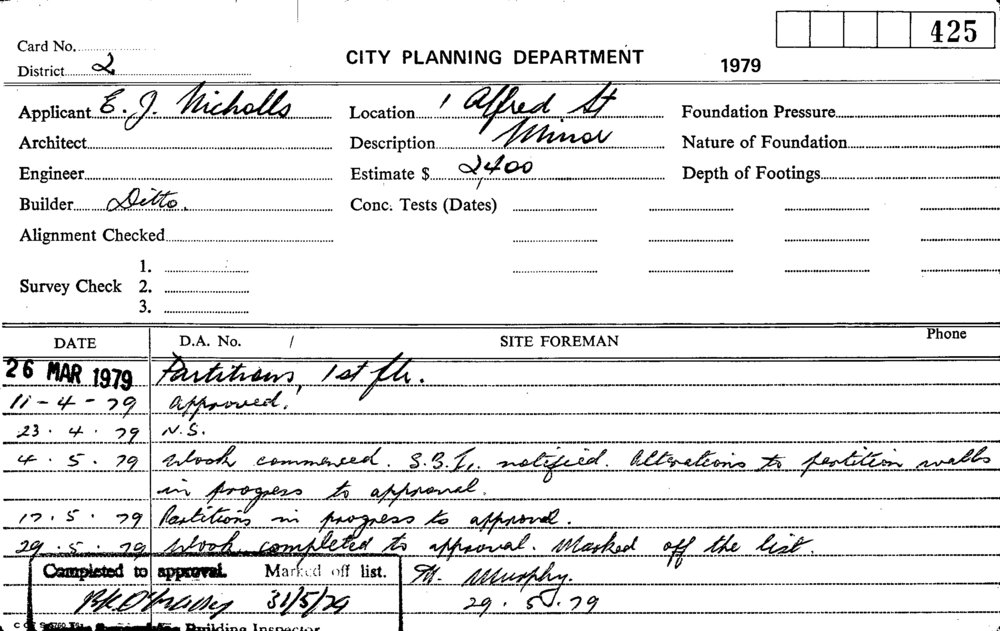 425
Card No.
District 2
CITY PLANNING DEPARTMENT
1979
Applicant E. J. Nicholls
Location 1 Alfred St
Foundation Pressure
Architect
Description Minor
Nature of Foundation
Engineer
Estimate $ 2,400
Depth of Footings
Builder Ditto.
Conc. Tests (Dates)
Alignment Checked
Survey Check 1.
2.
3.
DATE D.A. No. / SITE FOREMAN Phone
26 MAR 1979 Partitions, 1st flr.
11-4-79 Approved.
23.4.79 N.S.
4.5.79 Work commenced. S.B.I. notified. Alterations to partition walls
in progress to approval.
17.5.79 Partitions in progress to approval.
29.5.79 Work completed to approval. Marked off the list.
Completed to approval. Marked off list. Murphy.
31/5/79 29.5.79
Building Inspector